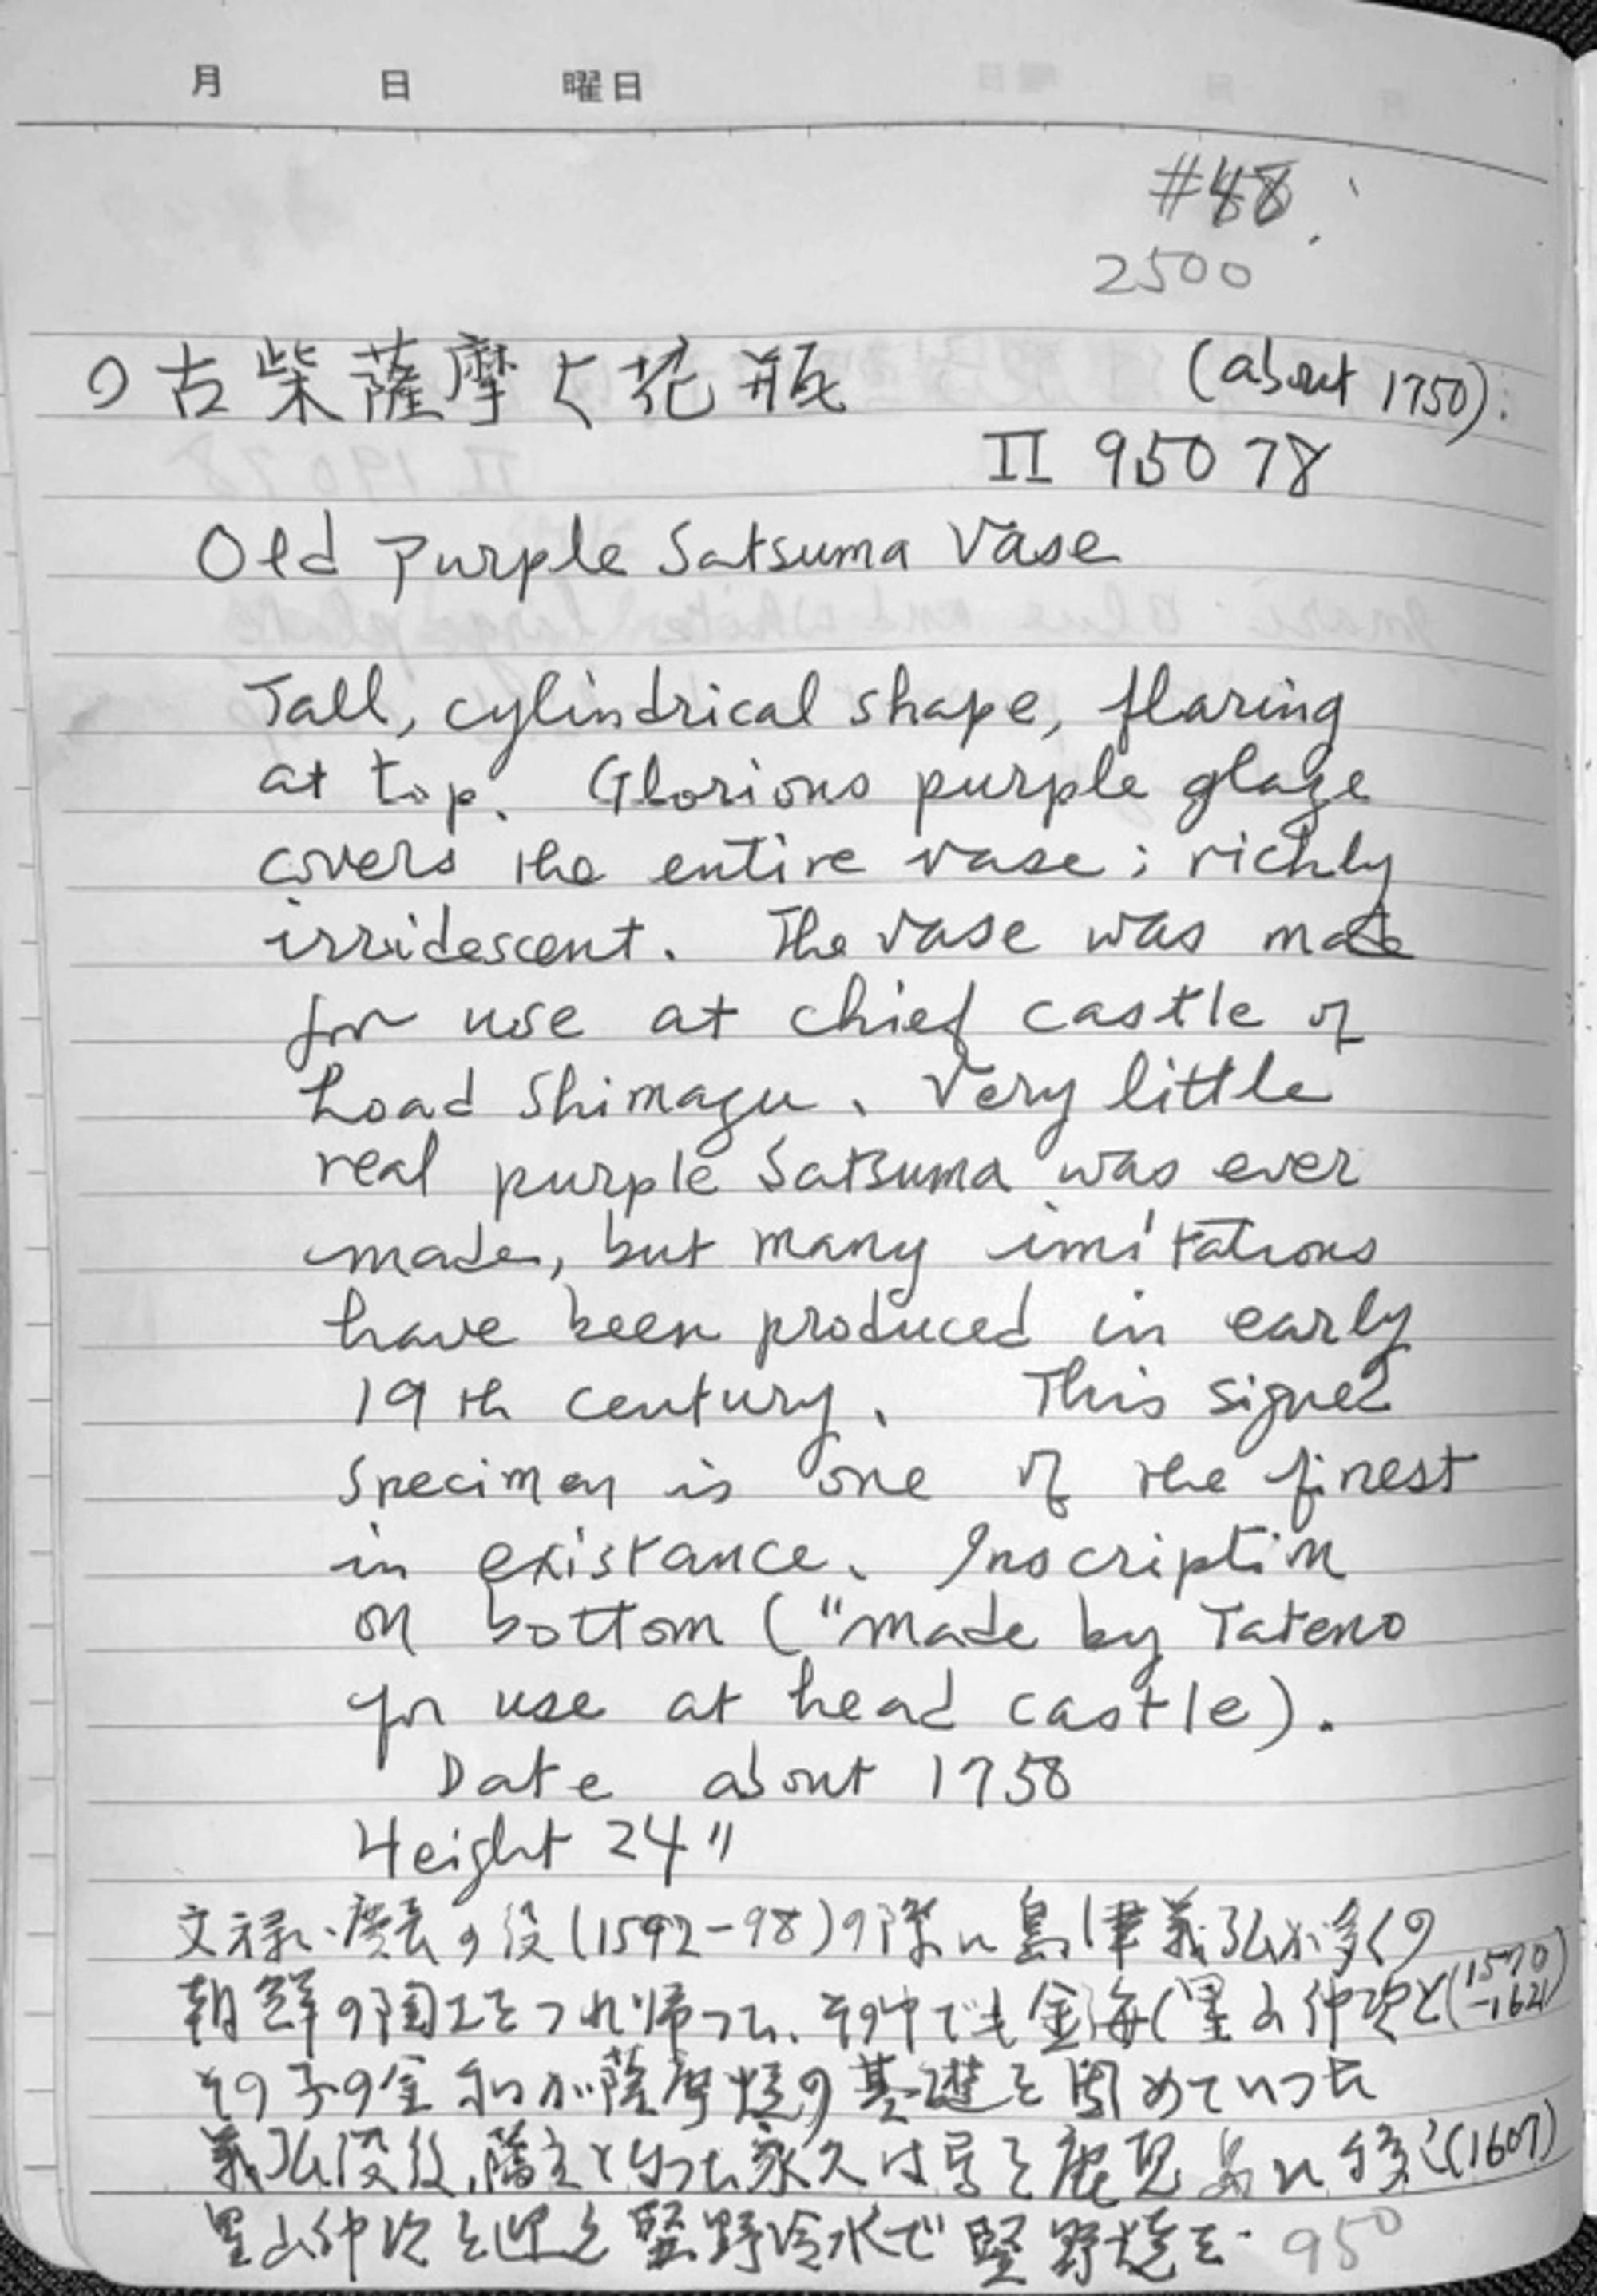 月 日 曜日
#48
2500
古柴薩摩 花瓶 (about 1750).
II 95078
Old Purple Satsuma Vase
Tall, cylindrical shape, flaring
at top. Glorious purple glaze
covers the entire vase; richly
irridescent. The vase was made
for use at chief castle of
Load Shimazu. Very little
real purple Satsuma was ever
made, but many imitations
have been produced in early
19th century. This signed
specimen is one of the finest
in existance. Inscription
on bottom ("made by Tateno
for use at head castle).
Date about 1758
Height 24"
文禄・慶長の役(1592-98)の際に島津義弘が多くの
朝鮮の陶工をつれ帰った、その中でも金海(星山仲次と(1570
-1621)
その子の金和が薩摩焼の基礎を固めていった
義弘没後、藩主となった家久は居を鹿児島に移し(1607)
星山仲次を迎え竪野冷水で竪野焼を
950